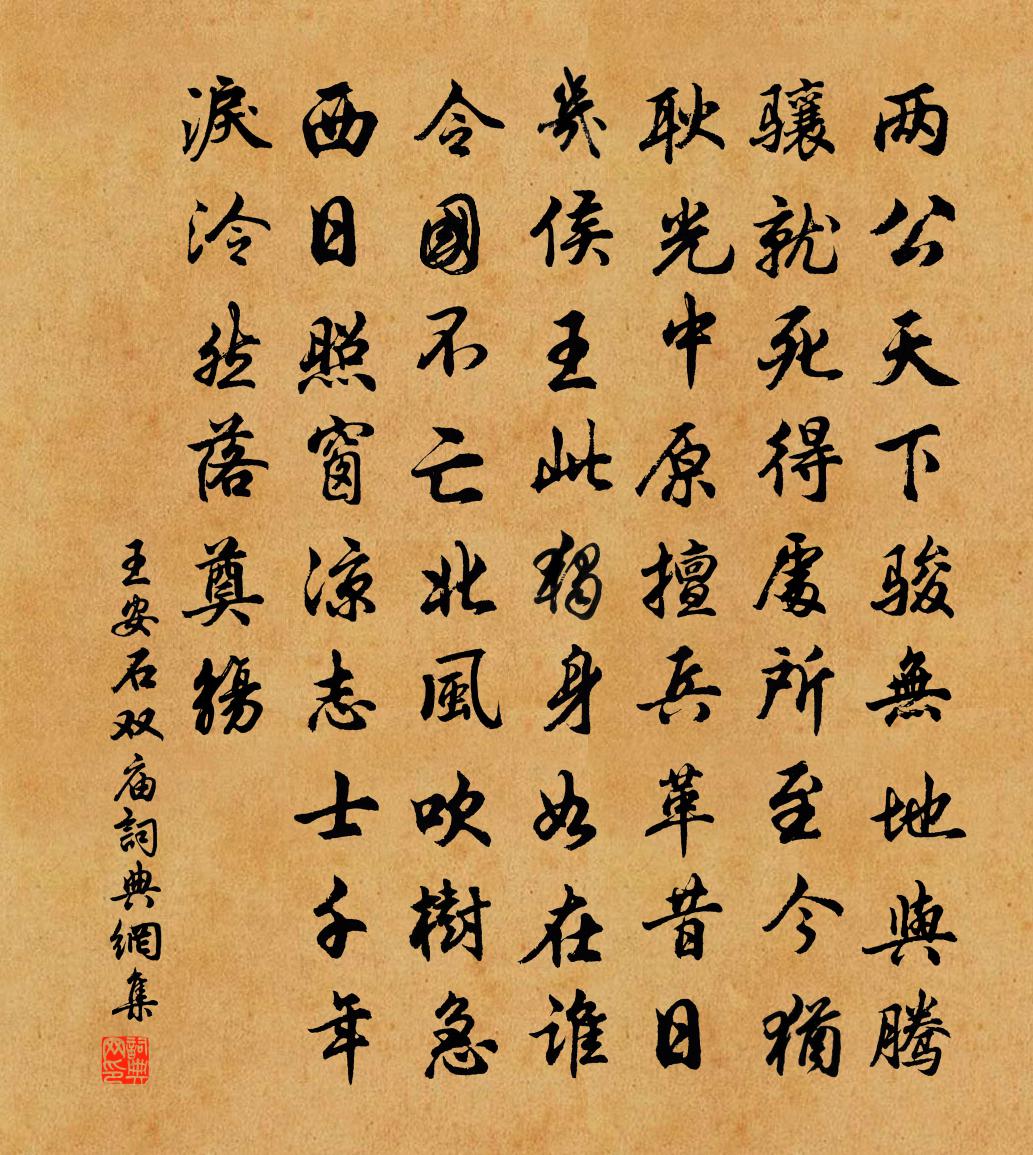 两公天下骏無地與腾
骧就死得處所至今猶
耿光中原擅兵革昔日
幾侯王此獨身如在谁
令國不亡北風吹樹急
西日照窗凉志士千年
淚泠然落奠觴
王安石双庙詞典網集
詞典网印